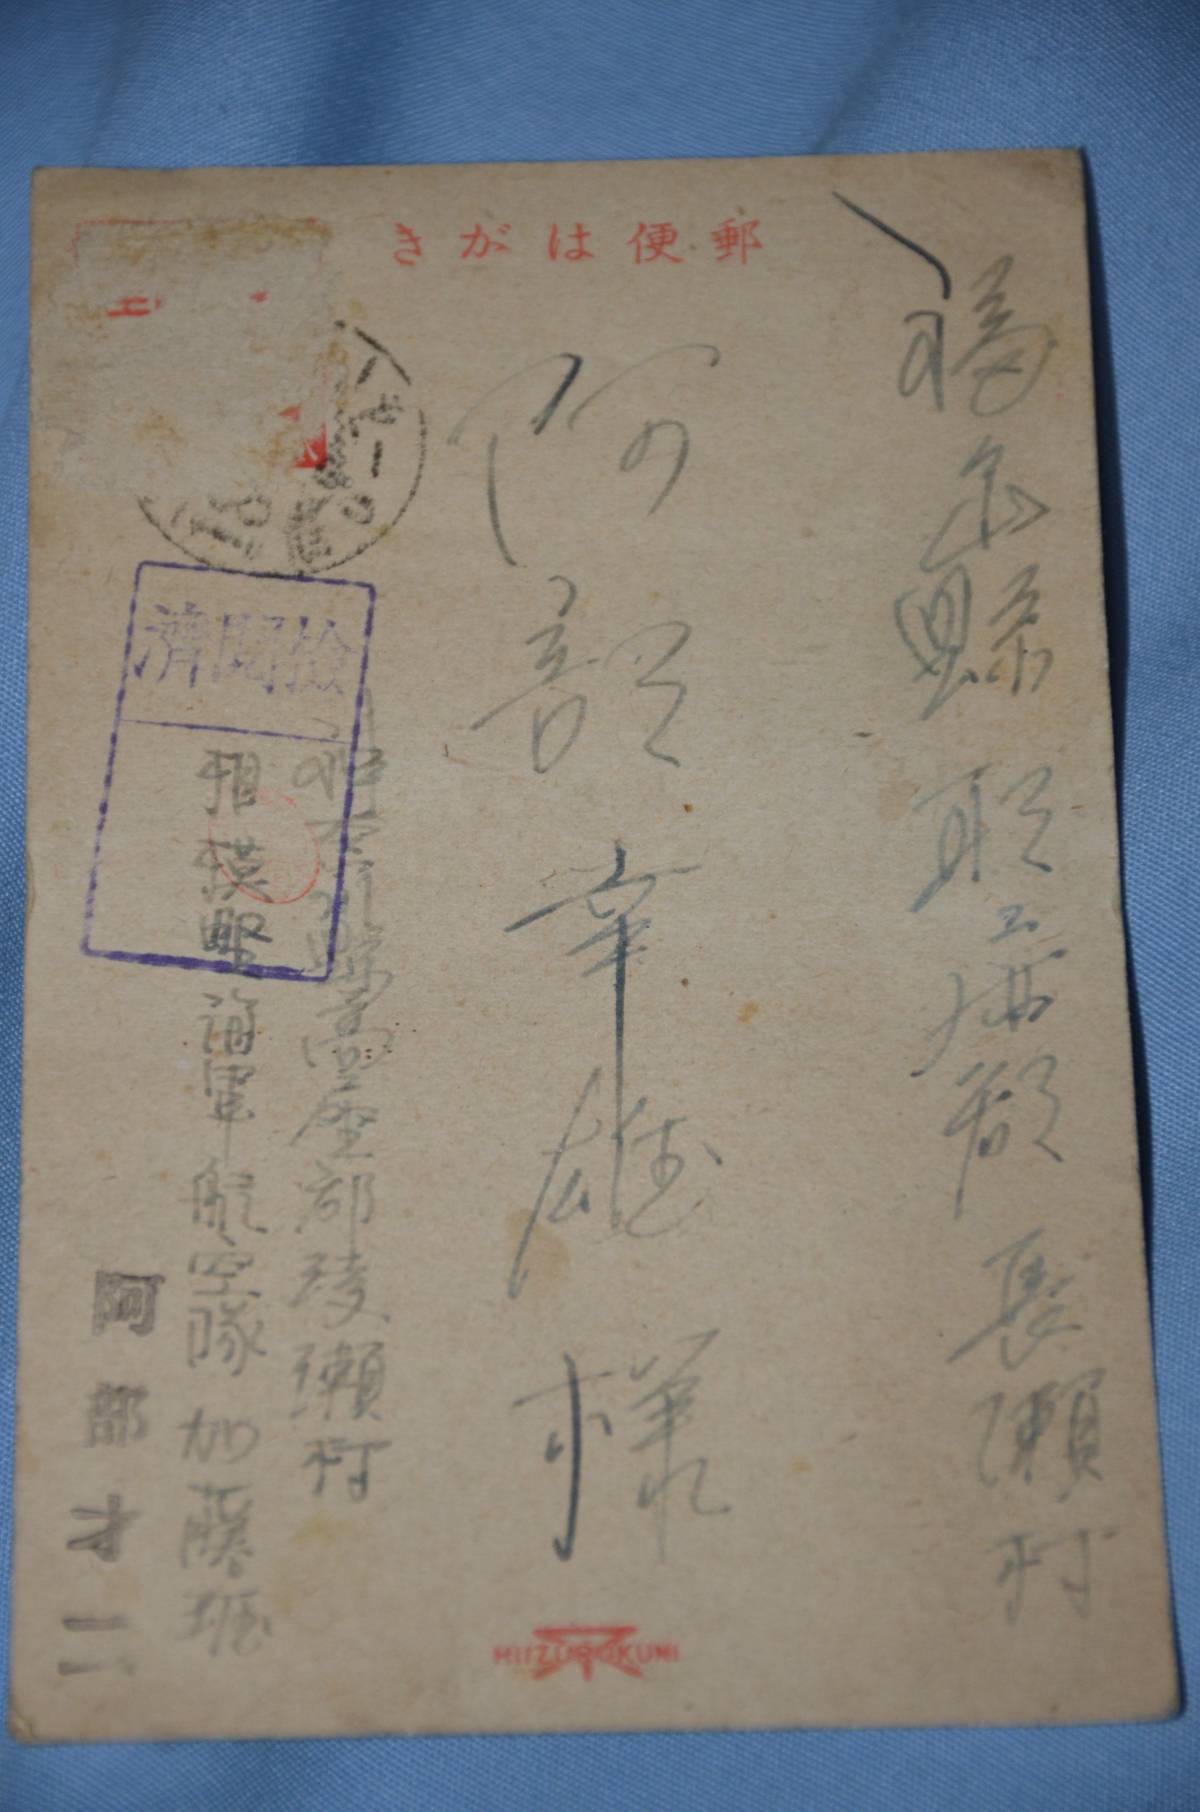 郵便はがき
福島縣耶麻郡長瀬村
阿部幸雄様
検閲済
神奈川縣高座郡綾瀬村
相模野海軍航空隊加藤班
阿部才二